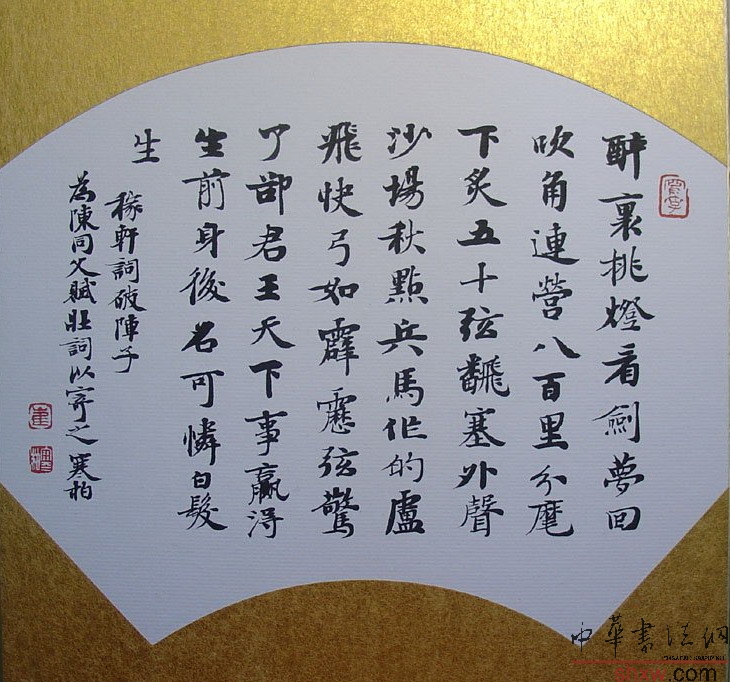 醉裏挑燈看劍夢回
吹角連營八百里分麾
下炙五十弦飜塞外聲
沙場秋點兵馬作的盧
飛快弓如霹靂弦驚
了卻君王天下事贏得
生前身後名可憐白髮
生
稼軒詞破陣子
為陳同父賦壯詞以寄之 寒柏
中華書法網
.com